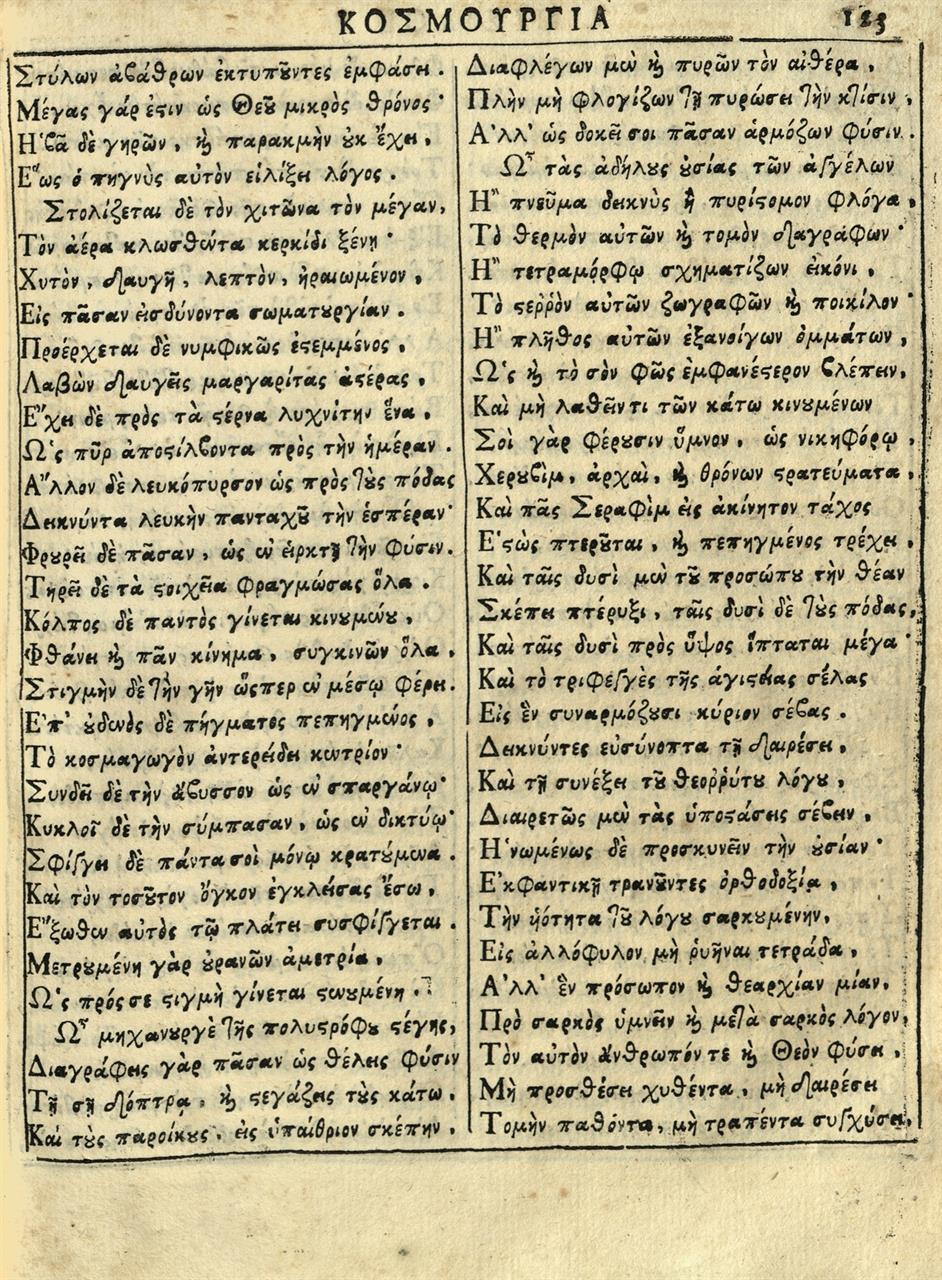 ΚΟΣΜΟΥΡΓΙΑ 123
Στύλων ἀβάθρων ἐκτυποῦντες ἐμφάσει.
Μέγας γάρ ἐστιν ὡς Θεοῦ μικρὸς θρόνος·
Ἡβᾷ δὲ γηρῶν, καὶ παρακμὴν οὐκ ἔχει,
Ἕως ὁ πηγνὺς αὐτὸν εἱλίξει λόγος.
Στολίζεται δὲ τὸν χιτῶνα τὸν μέγαν,
Τὸν ἀέρα κλωσθέντα κερκίδι ξένῃ·
Χυτὸν, διαυγῆ, λεπτὸν, ἠραιωμένον,
Εἰς πᾶσαν εἰσδύνοντα σωματουργίαν.
Προέρχεται δὲ νυμφικῶς ἐστεμμένος,
Λαβὼν διαυγεῖς μαργαρίτας ἀστέρας,
Ἔχει δὲ πρὸς τὰ στέρνα λυχνίτην ἕνα,
Ὡς πῦρ ἀποστίλβοντα πρὸς τὴν ἡμέραν.
Ἄλλον δὲ λευκόπυρσον ὡς πρὸς τοὺς πόδας
Δεικνύντα λευκὴν πανταχοῦ τὴν ἑσπέραν·
Φρουρεῖ δὲ πᾶσαν, ὡς ἐν εἱρκτῇ τὴν φύσιν.
Τηρεῖ δὲ τὰ στοιχεῖα φραγμώσας ὅλα.
Κόλπος δὲ παντὸς γίνεται κινουμένου,
Φθάνει καὶ πᾶν κίνημα, συγκινῶν ὅλα,
Στιγμὴν δὲ τὴν γῆν ὥσπερ ἐν μέσῳ φέρει.
Ἐπ' οὐδενὸς δὲ πήγματος πεπηγμένος,
Τὸ κοσμαγωγὸν ἀντερείδει κεντρίον·
Συνδεῖ δὲ τὴν ἄβυσσον ὡς ἐν σπαργάνῳ·
Κυκλοῖ δὲ τὴν σύμπασαν, ὡς ἐν δικτύῳ·
Σφίγγει δὲ πάντα σοὶ μόνῳ κρατούμενα.
Καὶ τὸν τοσοῦτον ὄγκον ἐγκλείσας ἔσω,
Ἔξωθεν αὐτὸς τῷ πλάτει συσφίγγεται.
Μετρουμένη γὰρ οὐρανῶν ἀμετρία,
Ὡς πρός σε στιγμὴ γίνεται στενουμένη.
Ὦ μηχανουργὲ τῆς πολυστρόφου στέγης,
Διαγράφεις γὰρ πᾶσαν ὡς θέλεις φύσιν
Τῇ σῇ διόπτρᾳ, καὶ στεγάζεις τοὺς κάτω.
Καὶ τοὺς παροίκους, εἰς ὑπαίθριον σκέπην,
Διαφλέγων μὲν καὶ πυρῶν τὸν αἰθέρα,
Πλὴν μὴ φλογίζων τῇ πυρώσει τὴν κτίσιν,
Ἀλλ' ὡς δοκεῖ σοι πᾶσαν ἁρμόζων φύσιν.
Ὦ τὰς ἀδήλους οὐσίας τῶν ἀγγέλων
Ἢ πνεῦμα δεικνὺς ἢ πυρίστομον φλόγα,
Τὸ θερμὸν αὐτῶν καὶ τομὸν διαγράφων·
Ἢ τετραμόρφῳ σχηματίζων εἰκόνι,
Τὸ στεῤῥὸν αὐτῶν ζωγραφῶν καὶ ποικίλον·
Ἢ πλῆθος αὐτῶν ἐξανοίγων ὀμμάτων,
Ὡς καὶ τὸ σὸν φῶς ἐμφανέστερον βλέπειν,
Καὶ μὴ λαθεῖν τι τῶν κάτω κινουμένων
Σοὶ γὰρ φέρουσιν ὕμνον, ὡς νικηφόρῳ,
Χερουβὶμ, ἀρχαὶ, καὶ θρόνων στρατεύματα,
Καὶ πᾶς Σεραφὶμ εἰς ἀκίνητον τάχος
Ἑστὼς πτεροῦται, καὶ πεπηγμένος τρέχει,
Καὶ ταῖς δυσὶ μὲν τοῦ προσώπου τὴν θέαν
Σκέπει πτέρυξι, ταῖς δυσὶ δὲ τοὺς πόδας,
Καὶ ταῖς δυσὶ πρὸς ὕψος ἵπταται μέγα·
Καὶ τὸ τριφεγγὲς τῆς ἁγιστείας σέλας
Εἰς ἓν συναρμόζουσι κύριον σέβας.
Δεικνύντες εὐσύνοπτα τῇ διαιρέσει,
Καὶ τῇ συνέξει τοῦ θεοῤῥύτου λόγου,
Διαιρετῶς μὲν τὰς ὑποστάσεις σέβειν,
Ἡνωμένως δὲ προσκυνεῖν τὴν οὐσίαν·
Ἐκφαντικῇ τρανοῦντες ὀρθοδοξίᾳ,
Τὴν υἱότητα τοῦ λόγου σαρκουμένην,
Εἰς ἀλλόφυλον μὴ ῥυῆναι τετράδα,
Ἀλλ' ἓν πρόσωπον καὶ θεαρχίαν μίαν,
Πρὸ σαρκὸς ὑμνεῖν καὶ μετὰ σαρκὸς λόγον,
Τὸν αὐτὸν ἄνθρωπόν τε καὶ Θεὸν φύσει,
Μὴ προσθέσει χυθέντα, μὴ διαιρέσει
Τομὴν παθόντα, μὴ τραπέντα συγχύσει,